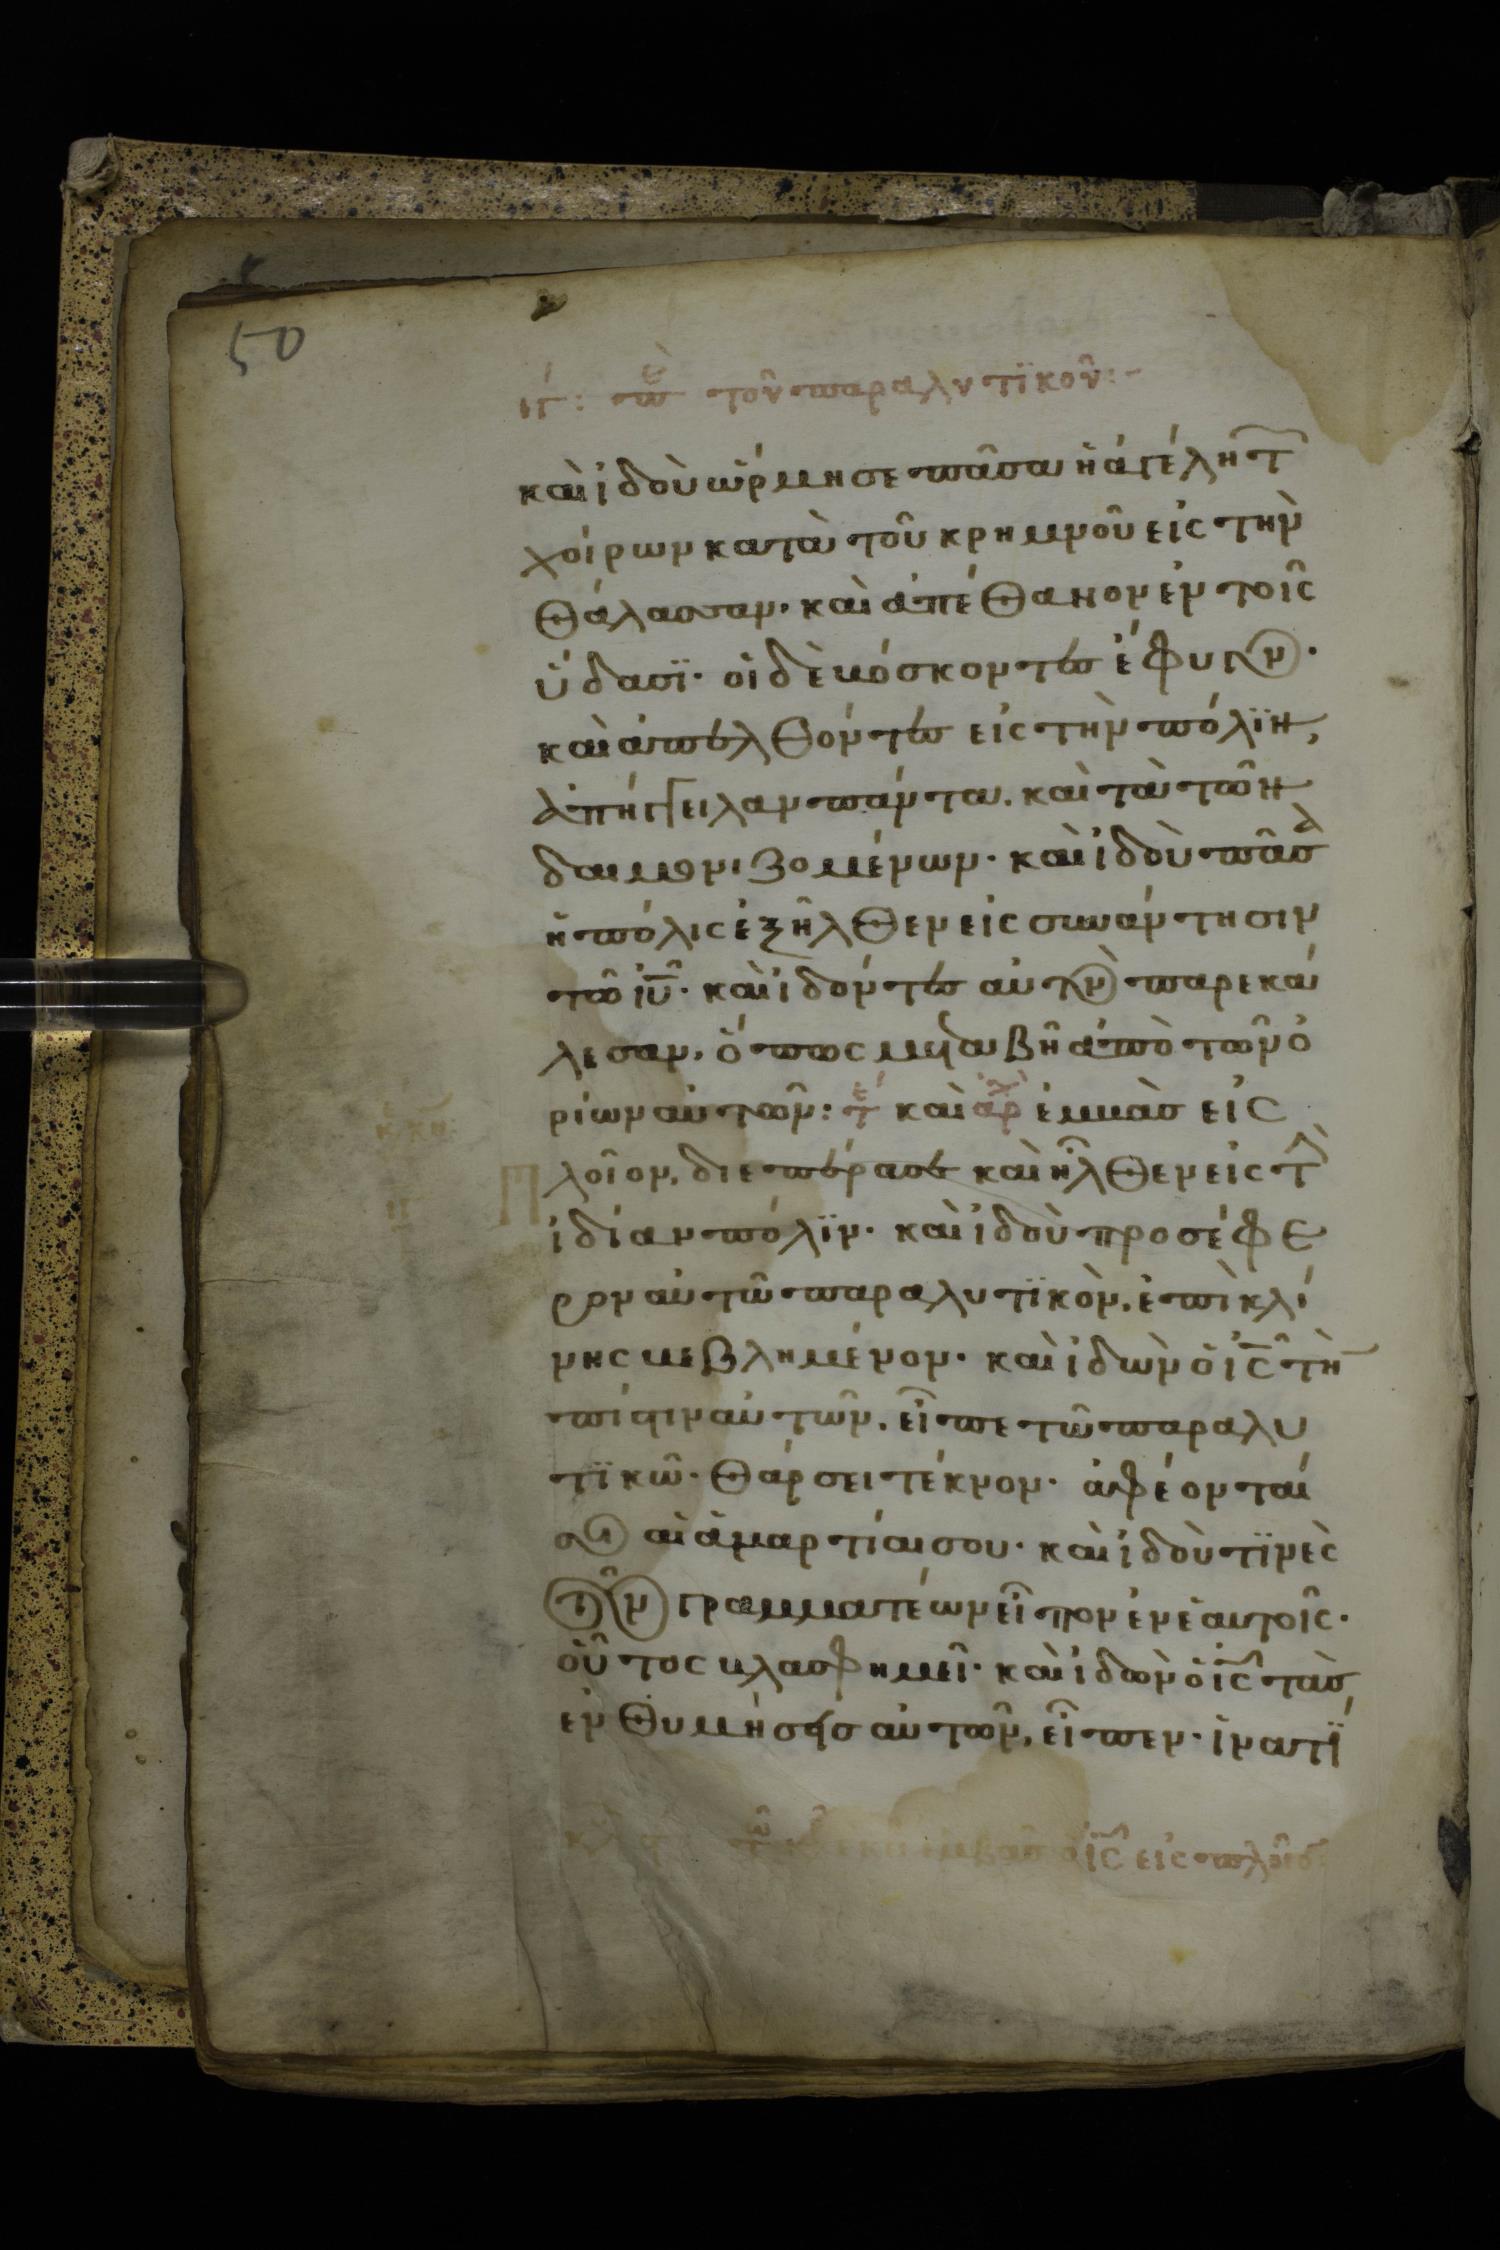 50
ιγ: περὶ τοῦ παραλυτϊκοῦ:-
καὶ ἰδοὺ ὥρμησε πᾶσα ἡ ἀγέλη τῶν
χοίρων κατὰ τοῦ κρημνοῦ εἰς τὴν
θάλασσαν· καὶ ἀπέθανον ἐν τοῖς
ὕδασϊ· οἱ δὲ βόσκοντες ἔφυγον·
καὶ ἀπελθόντες εἰς τὴν πόλϊν,
ἀπήγγειλαν πάντα. καὶ τὰ τῶν
δαιμονιζομένων· καὶ ἰδοὺ πᾶσα
ἡ πόλις ἐξῆλθεν εἰς συνάντησιν
τῶ ἰῦ· καὶ ἰδόντες αὐτὸν παρεκά
λεσαν, ὅπως μεταβῆ ἀπὸ τῶν ὁ
ρίων αὐτῶν: τέ καὶ ἀρχ ἐμβὰς εἰς
πλοῖον, διεπέρασε καὶ ἦλθεν εἰς τὴν
ἰδίαν πόλϊν· καὶ ἰδοὺ προσέφε
ρον αὐτῶ παραλυτϊκὸν, ἐπὶ κλί
νης βεβλημένον· καὶ ἰδὼν ὁ ἰς τὴν
πίστιν αὐτῶν, εἶπε τῶ παραλυ
τϊκῶ· θάρσει τέκνον· ἀφέονταί
σοι αἱ ἁμαρτίαι σου· καὶ ἰδοὺ τϊνὲς
τῶν γραμματέων εἶπον ἐν ἑαυτοῖς·
οὗτος βλασφημεῖ· καὶ ἰδὼν ὁ ἰς τὰς
ἐνθυμήσεις αὐτῶν, εἶπεν· ἱνατϊ
ἐμβὰς ὁ ἰς εἰς πλοῖο